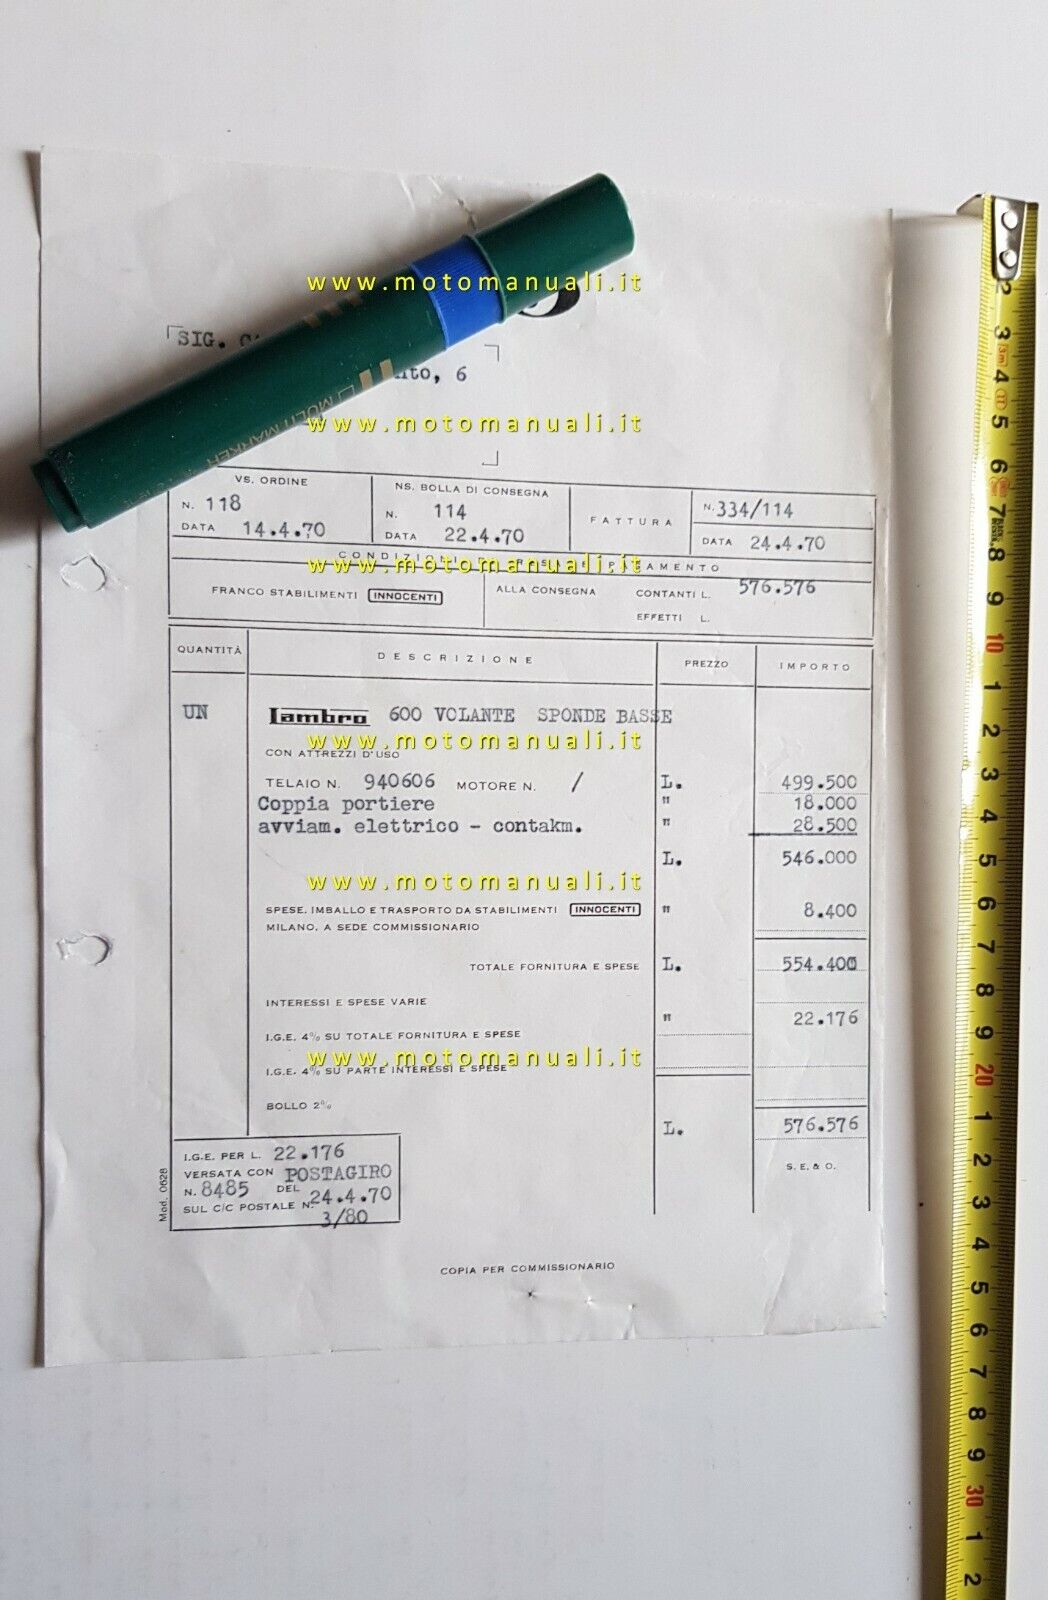 www.motomanuali.it
SIG.
6
MULTI MARKER
www.motomanuali.it
VS. ORDINE
N. 118
DATA 14.4.70
NS. BOLLA DI CONSEGNA
N. 114
DATA 22.4.70
FATTURA
N. 334/114
DATA 24.4.70
www.motomanuali.it
FRANCO STABILIMENTI INNOCENTI
ALLA CONSEGNA CONTANTI L. 576.576
EFFETTI L.
QUANTITÀ DESCRIZIONE PREZZO IMPORTO
UN Lambro 600 VOLANTE SPONDE BASSE
www.motomanuali.it
CON ATTREZZI D'USO
TELAIO N. 940606 MOTORE N. / L. 499.500
Coppia portiere " 18.000
avviam. elettrico - contakm. " 28.500
L. 546.000
www.motomanuali.it
SPESE, IMBALLO E TRASPORTO DA STABILIMENTI INNOCENTI " 8.400
MILANO, A SEDE COMMISSIONARIO
TOTALE FORNITURA E SPESE L. 554.400
INTERESSI E SPESE VARIE
" 22.176
I.G.E. 4% SU TOTALE FORNITURA E SPESE
www.motomanuali.it
I.G.E. 4% SU PARTE INTERESSI E SPESE
BOLLO 2%
L. 576.576
S. E. & O.
I.G.E. PER L. 22.176
VERSATA CON POSTAGIRO
N. 8485 DEL 24.4.70
SUL C/C POSTALE N. 3/80
Mod. 0628
COPIA PER COMMISSIONARIO
2
3
3m
4
5
6
7
8
9
10
1
2
3
4
5
6
7
8
9
20
1
2
3
4
5
6
7
8
9
30
1
2